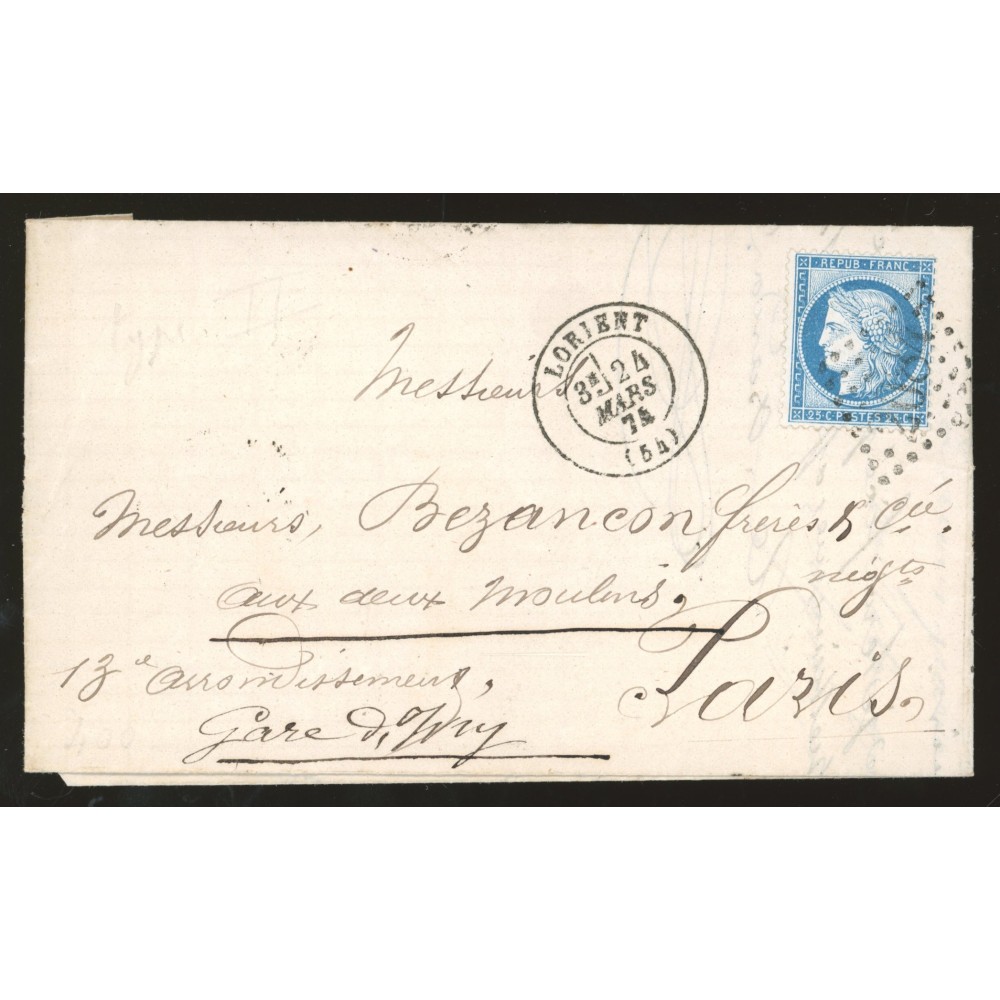 Type II
REPUB·FRANC
25·C·POSTES·25·C
LORIENT
3E 24
MARS
74
(54)
Messieurs
Messieurs, Bezançon frères & Cie.
négts
aux deux Moulins,
Paris.
13e arrondissement,
Gare d'Ivry